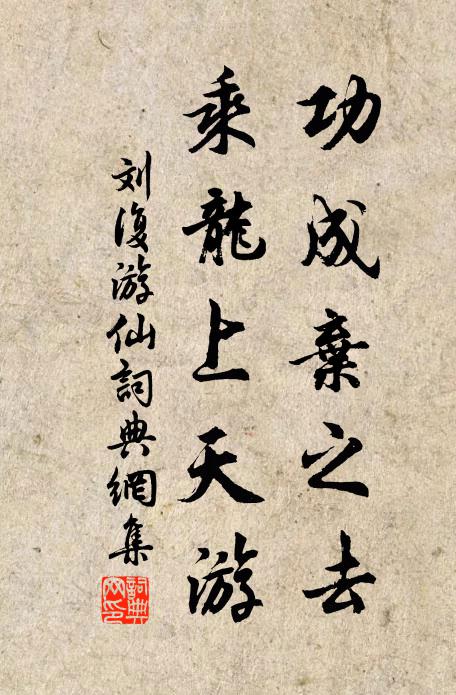 功成棄之去
乘龍上天游
刘復游仙詞典網集
詞典網印